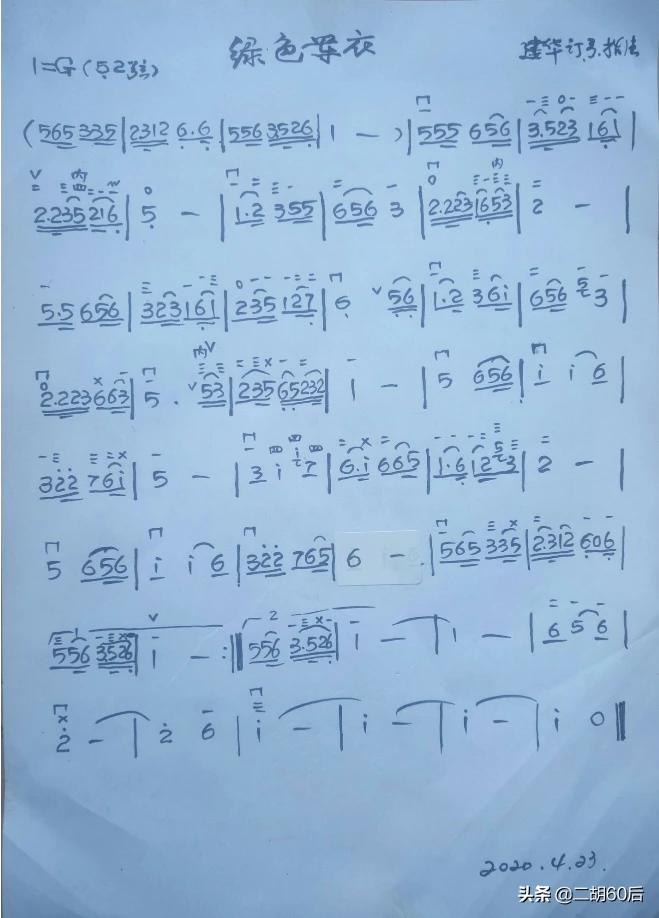 绿色军衣
1=G(52弦) 建华订弓.指法
(565 335|2312 6.6|556 3.526|1 —)|555 656|3.523 161|
2.235 216|5 —|1.2 355|656 3|2.223 1653|2 —|
5.5 656|323 161|235 127|6 56|1.2 361|656 3|
2.223 663|5. 53|235 65232|1 —|5 656|i i 6|
322 761|5 —|3 i 7|6.i 665|1.6 12 3|2 —|
5 656|i i 6|322 765|6 —|565 335|2.312 606|
556 3.526|i —:‖556 3.526|i —|i —|6 5 6|
2 —|2 6|i —|i —|i —|i 0‖
2020.4.23.
头条 @二胡60后